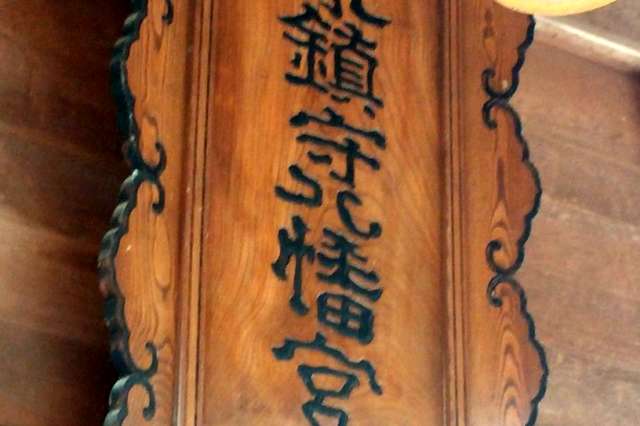 鎮守八幡宮